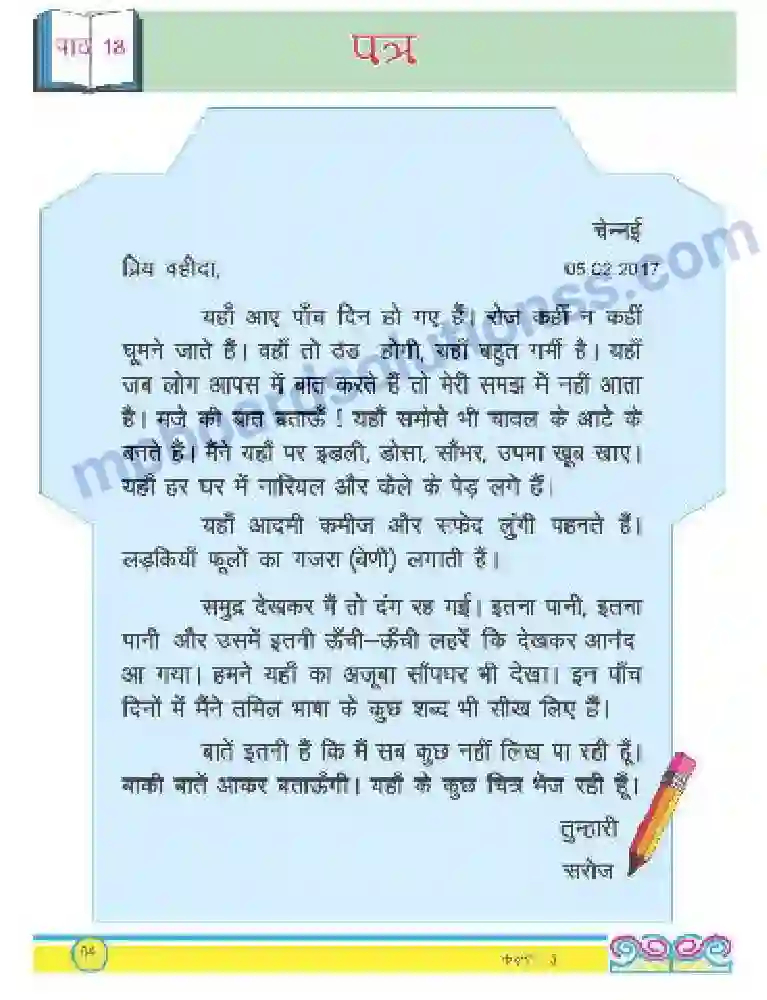 पाठ 18
पत्र
चेन्नई
प्रिय वहीदा,
05.02.2017
यहाँ आए पाँच दिन हो गए हैं। रोज कहीं न कहीं
घूमने जाते हैं। वहाँ तो ठंड होगी, यहाँ बहुत गर्मी है। यहाँ
जब लोग आपस में बात करते हैं तो मेरी समझ में नहीं आता
है। मजे की बात बताऊँ ! यहाँ समोसे भी चावल के आटे के
बनते है। मैंने यहाँ पर इडली, डोसा, साँभर, उपमा खूब खाए।
यहाँ हर घर में नारियल और केले के पेड़ लगे हैं।
यहाँ आदमी कमीज और सफेद लुंगी पहनते हैं।
लड़कियाँ फूलों का गजरा (बेणी) लगाती हैं।
समुद्र देखकर मैं तो दंग रह गई। इतना पानी, इतना
पानी और उसमें इतनी ऊँची–ऊँची लहरें कि देखकर आनंद
आ गया। हमने यहाँ का अजूबा साँपघर भी देखा। इन पाँच
दिनों में मैंने तमिल भाषा के कुछ शब्द भी सीख लिए हैं।
बातें इतनी हैं कि मैं सब कुछ नहीं लिख पा रही हूँ।
बाकी बातें आकर बताऊँगी। यहाँ के कुछ चित्र भेज रही हूँ।
तुम्हारी
सरोज
3